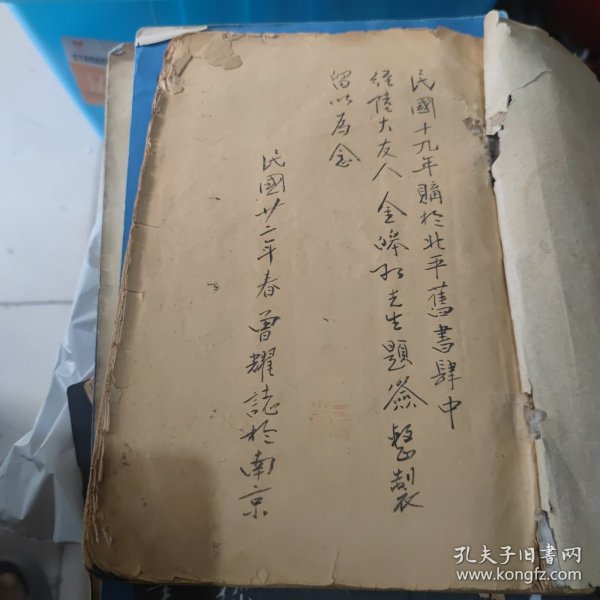 民國十九年購於北平舊書肆中
經陸大友人金皞孙先生題簽整製
留以爲念
民國廿二年春曾耀誌於南京
孔夫子旧书网
www.kongfz.com